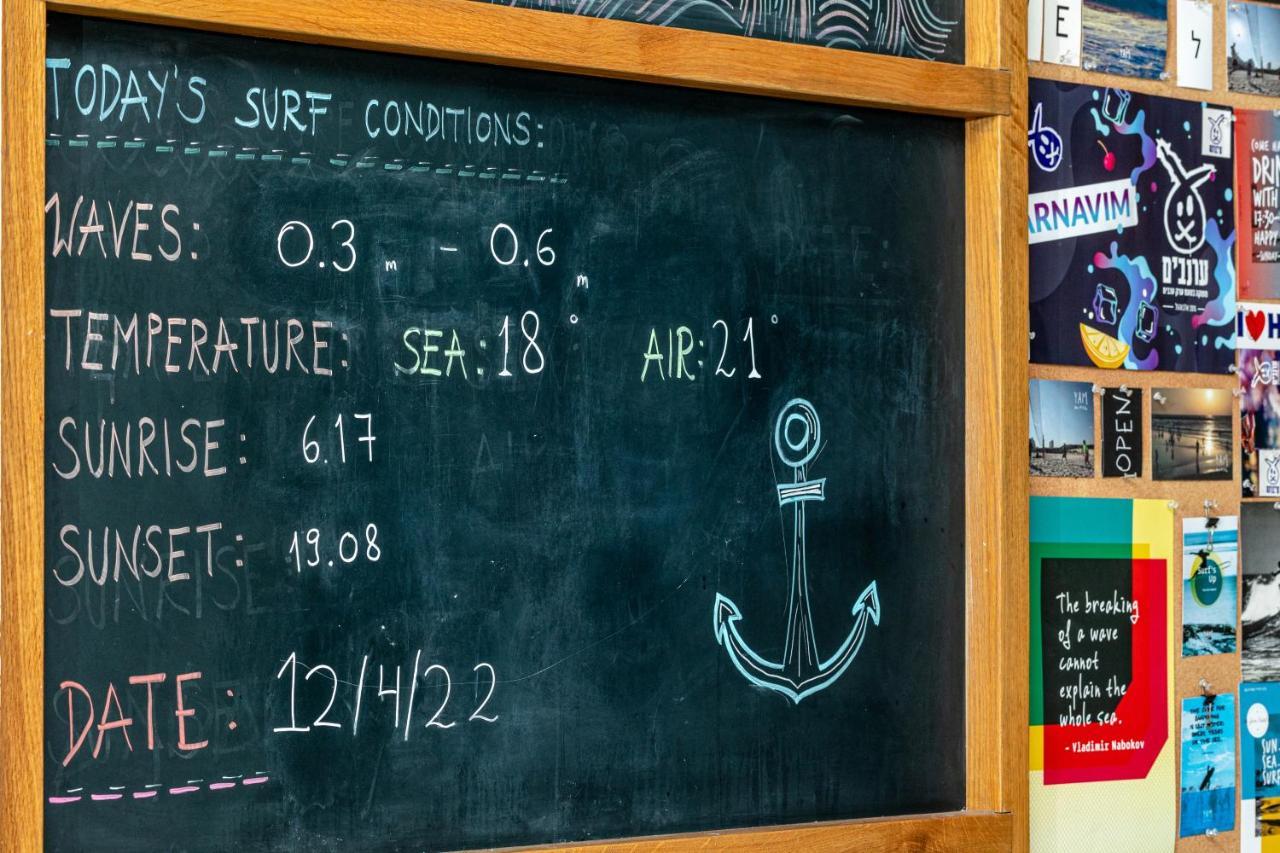 TODAY'S SURF CONDITIONS:
WAVES: 0.3 m - 0.6 m
TEMPERATURE: SEA: 18° AIR: 21°
SUNRISE: 6.17
SUNSET: 19.08
DATE: 12/4/22
E
YAM
ל
ARNAVIM
ערנבים
DRIN
WITH
17:30
HAPPY
SUNDAY
I ❤ H
YAM
OPEN
YAM
Surf's
Up
The breaking
of a wave
cannot
explain the
whole sea.
- Vladimir Nabokov
YAM
SUN
SEA
SURF